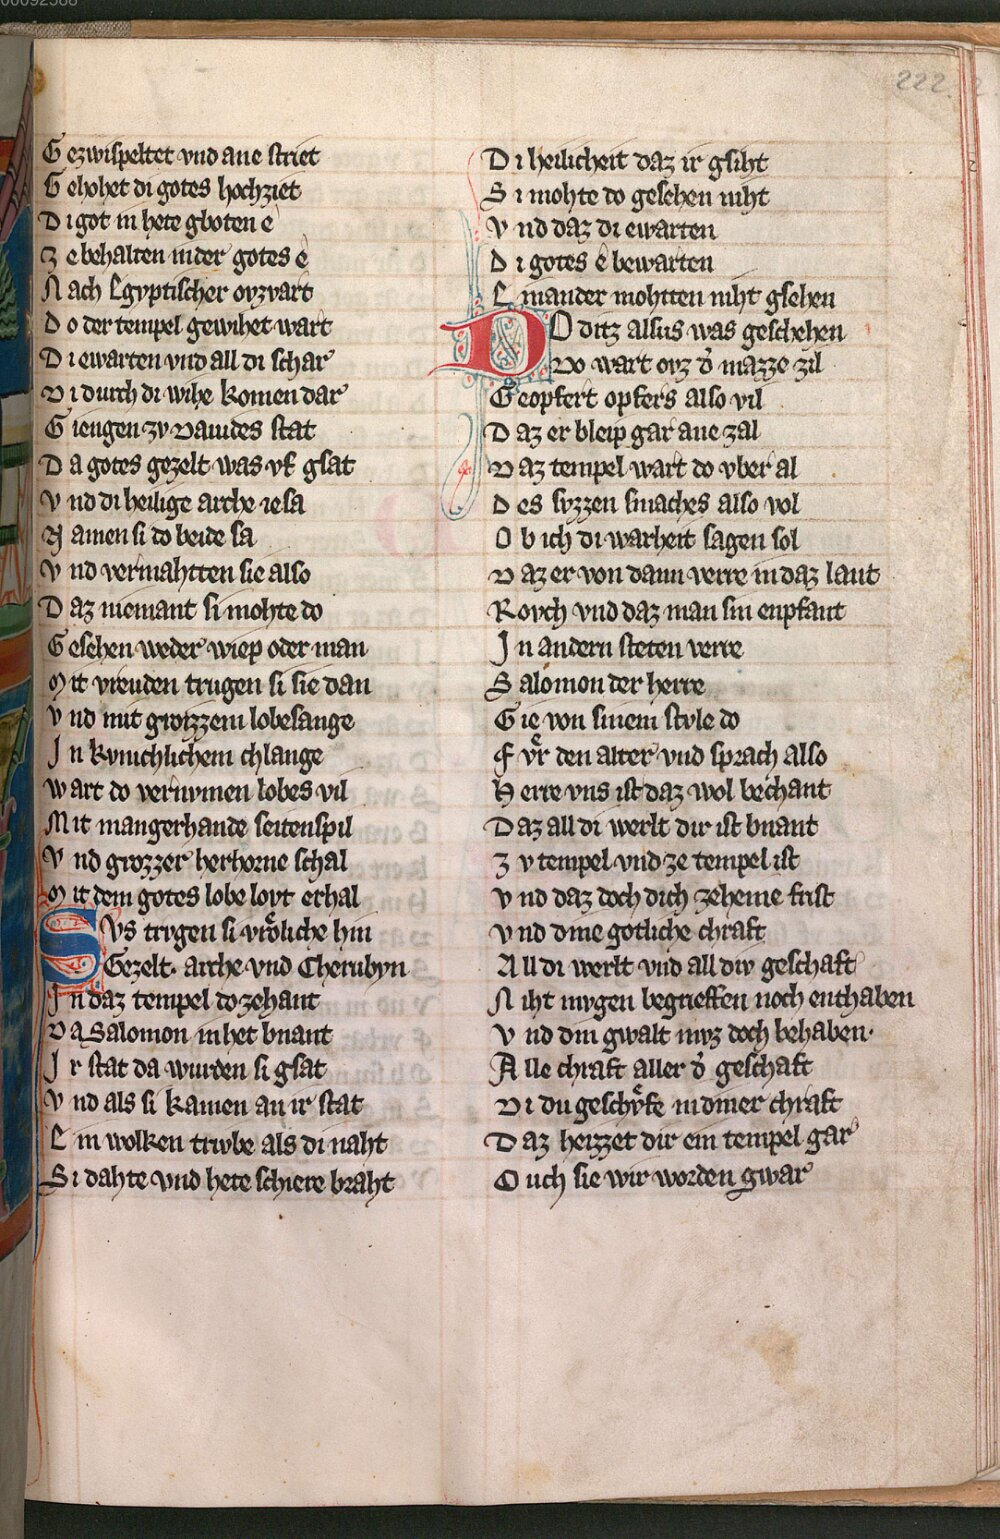 00092588
222
Gezwispeltet vnd ane striet
Gehohet di gotes hochziet
Di got in hete gboten e
Ze behalten in der gotes e
Nach Egyptischer ovzvart
Do der tempel gewihet wart
Di ewarten vnd all di schar
Di durch di wihe komen dar
Giengen zv Dauides stat
Da gotes gezelt was vf gsat
Vnd di heilige arche iesa
Namen si do beide sa
Vnd vermahtten sie also
Daz niemant si mohte do
Gesehen weder wiep oder man
Mit vreuden trugen si sie dan
Vnd mit grozzem lobesange
In kvnichlichem chlange
Wart do vernvmen lobes vil
Mit mangerhande seitenspil
Vnd grozzer herhorne schal
Mit dem gotes lobe lovt erhal
Svs trvgen si vrôliche hin
Gezelt· arche vnd Cherubyn
In daz tempel do zehant
Da Salomon in het bnant
Ir stat da wurden si gsat
Vnd als si kamen an ir stat
Ein wolken trvbe als di naht
Si dahte vnd hete schiere braht
Di heilicheit daz ir gsiht
Si mohte do gesehen niht
Vnd daz di ewarten
Di gotes ê bewarten
Einander mohtten niht gsehen
Do ditz alsus was geschehen
Do wart ovz d' mazze zil
Geopfert opfers also vil
Daz er bleip gar ane zal
Daz tempel wart do vber al
Des svzzen smaches also vol
Ob ich di warheit sagen sol
Daz er von dann verre in daz lant
Rovch vnd daz man sin enpfant
In andern steten verre
Salomon der herre
Gie von sinem stvle do
Fvͤr den alter vnd sprach also
Herre vns ist daz wol bechant
Daz all di werlt dir ist bnant
Zv tempel vnd ze tempel ist
Vnd daz doch dich zeheine frist
Vnd dine gotliche chraft
All di werlt vnd all div geschaft
Niht mvgen begrieffen noch enthaben
Vnd din gwalt mvz doch behaben·
Alle chraft aller d' geschaft
Di du geschvͤfe in diner chraft
Daz heizzet dir ein tempel gar
Ouch sie wir worden gwar